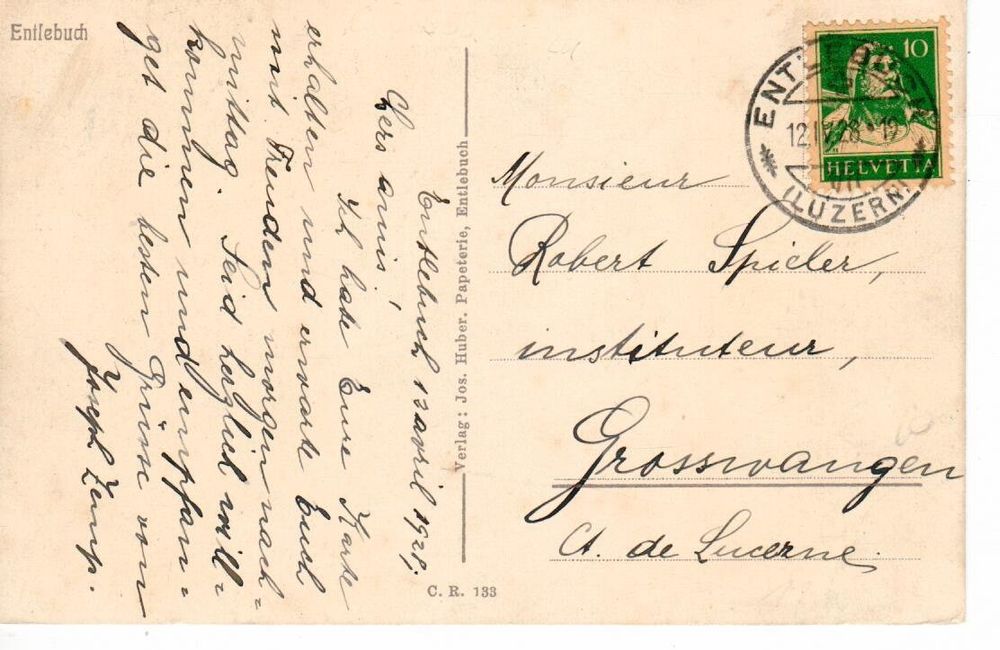 Entlebuch
Entlebuch 12 avril 1928.
Chers amis!
Ich habe Eure Karte
erhalten und erwarte Euch
mit Freuden morgen nach-
mittag. Seid herzlich will-
kommen und empfan-
get die besten Grüsse von
Joseph Zemp.
Verlag: Jos. Huber. Papeterie, Entlebuch
C. R. 133
10
HELVETIA
ENTLEBUCH
12.IV.28-19
VII
(LUZERN)
Monsieur
Robert Spieler,
instituteur,
Grosswangen
Ct. de Lucerne.